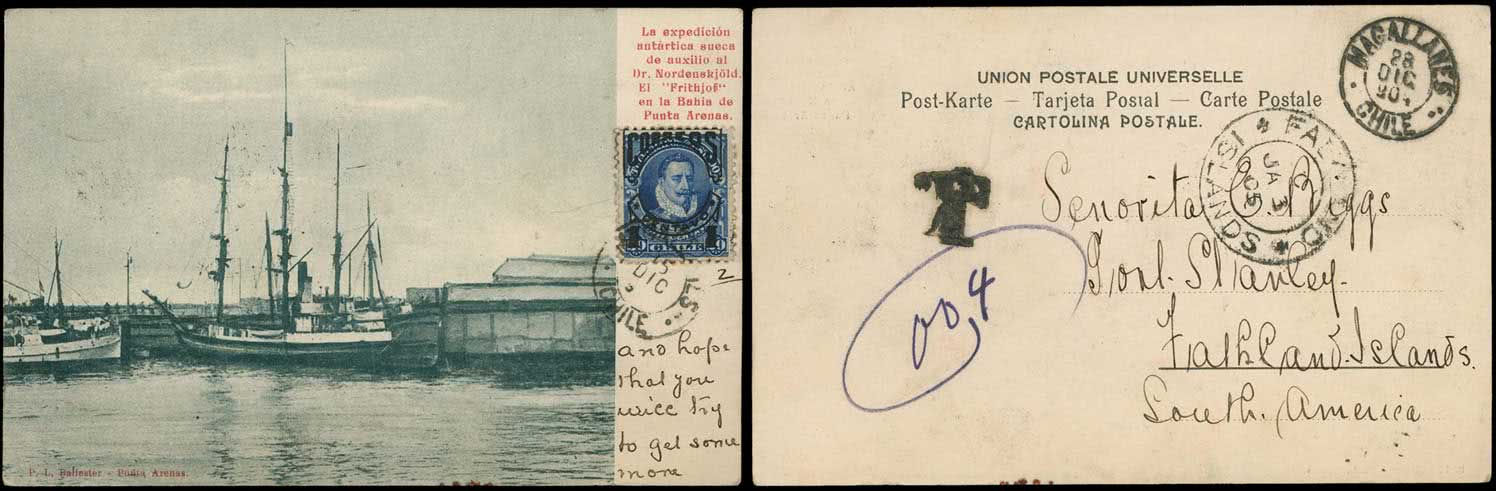 La expedición
antártica sueca
de auxilio al
Dr. Nordenskjöld.
El "Frithjof"
en la Bahia de
Punta Arenas.
CORREOS
CENTAVO
1 1
10 10
CHILE
15
DIC
CHILE
2
and hope
that you
will try
to get some
more
P. L. Ballester - Punta Arenas.
UNION POSTALE UNIVERSELLE
Post-Karte — Tarjeta Postal — Carte Postale
CARTOLINA POSTALE.
MAGALLANES
28
DIC
904
CHILE
FALKLAND ISLANDS
JA 3
05
T
00,4
Senorita C. Biggs
Port. Stanley.
Falkland. Islands.
South. America